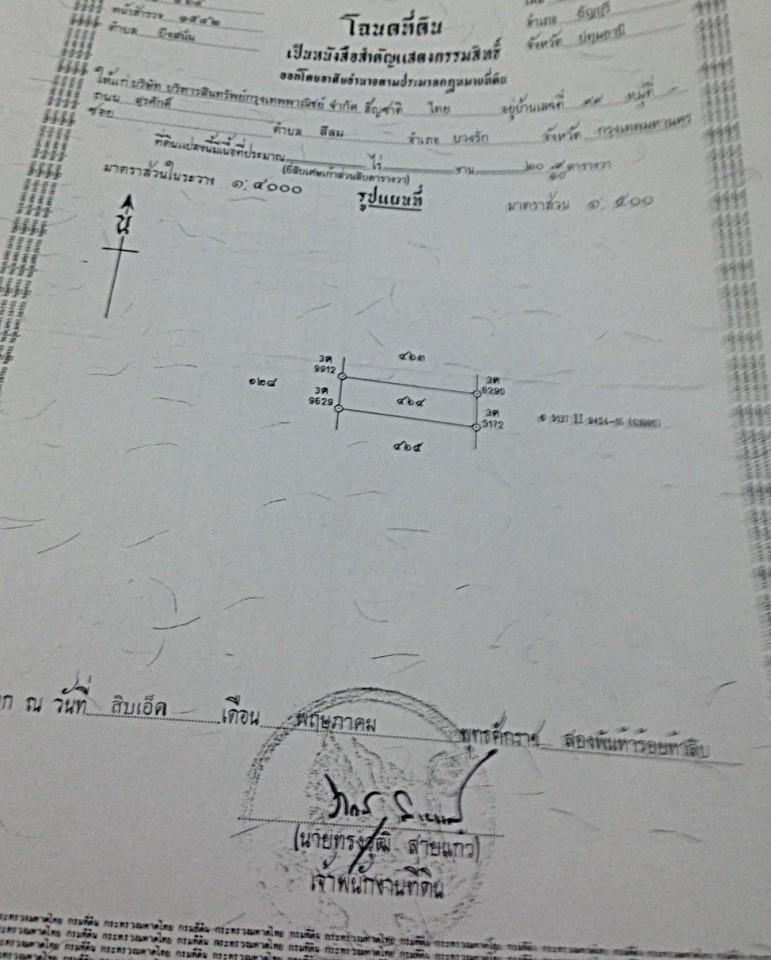 หน้าสำรวจ ๑๕๔๒
ตำบล บึงสนั่น
อำเภอ ธัญบุรี
จังหวัด ปทุมธานี
โฉนดที่ดิน
เป็นหนังสือสำคัญแสดงกรรมสิทธิ์
ออกโดยอาศัยอำนาจตามประมวลกฎหมายที่ดิน
ให้แก่ บริษัท บริหารสินทรัพย์กรุงเทพพาณิชย์ จำกัด สัญชาติ ไทย อยู่บ้านเลขที่ ๙๙ หมู่ที่ -
ถนน สุรศักดิ์
ซอย ตำบล สีลม อำเภอ บางรัก จังหวัด กรุงเทพมหานคร
ที่ดินแปลงนี้มีเนื้อที่ประมาณ ไร่ งาน ๒๐ ๙/๑๐ ตารางวา
(ยี่สิบเศษเก้าส่วนสิบตารางวา)
มาตราส่วนในระวาง ๑:๔๐๐๐ รูปแผนที่ มาตราส่วน ๑:๕๐๐
น
๔๖๓
3ค
9912
๑๒๘
3ค
6290
3ค
9629
๔๖๔
3ค
5172
๔๖๕
ณ วันที่ สิบเอ็ด เดือน พฤษภาคม พุทธศักราช สองพันห้าร้อยห้าสิบ
(นายทรงวุฒิ สายแก้ว)
เจ้าพนักงานที่ดิน
กระทรวงมหาดไทย กรมที่ดิน กระทรวงมหาดไทย กรมที่ดิน กระทรวงมหาดไทย กรมที่ดิน